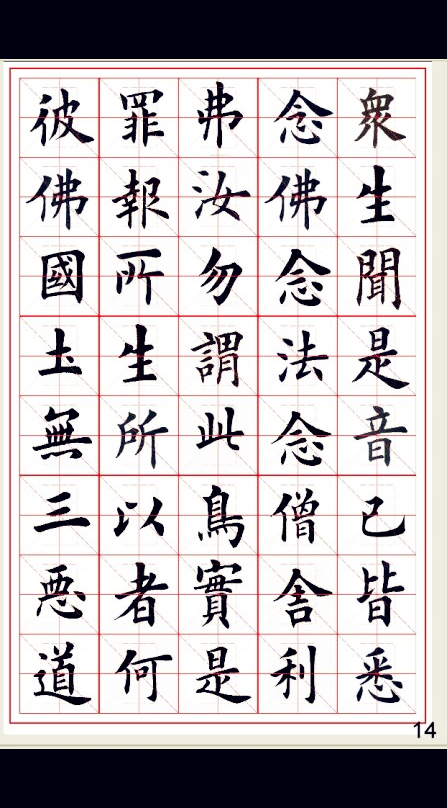 衆生聞是音已皆悉
念佛念法念僧舍利
弗汝勿謂此鳥實是
罪報所生所以者何
彼佛國圡無三悪道
14